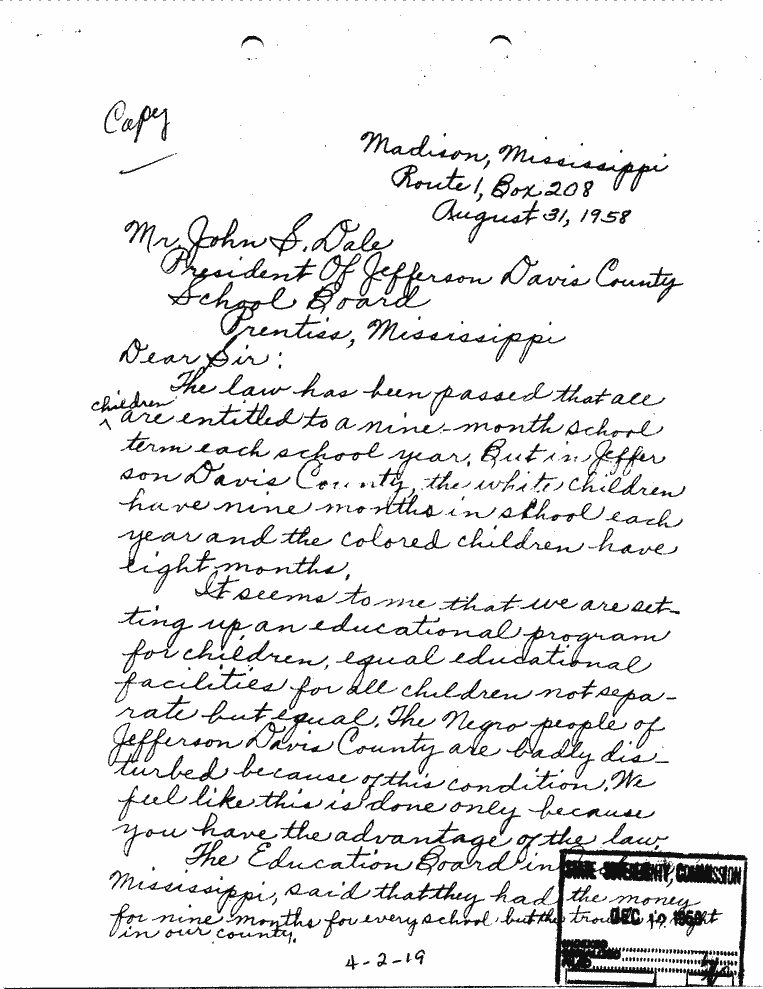 Copy
Madison, Mississippi
Route 1, Box 208
August 31, 1958
Mr. John S. Dale
President Of Jefferson Davis County
School Board
Prentiss, Mississippi
Dear Sir:
The law has been passed that all
children
are entitled to a nine-month school
term each school year. But in Jeffer
son Davis County, the white children
have nine months in school each
year and the colored children have
eight months.
It seems to me that we are set-
ting up an educational program
for children, equal educational
facilities for all children not sepa-
rate but equal. The Negro people of
Jefferson Davis County are badly dis-
turbed because of this condition. We
feel like this is done only because
you have the advantage of the law.
The Education Board in
STATE SOVEREIGNTY COMMISSION
Mississippi, said that they had the money
for nine months for every school but the
DEC
in our county.
4-2-19